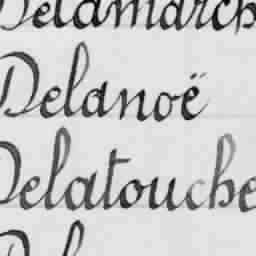 Delamarch
Delanoë
Delatouche